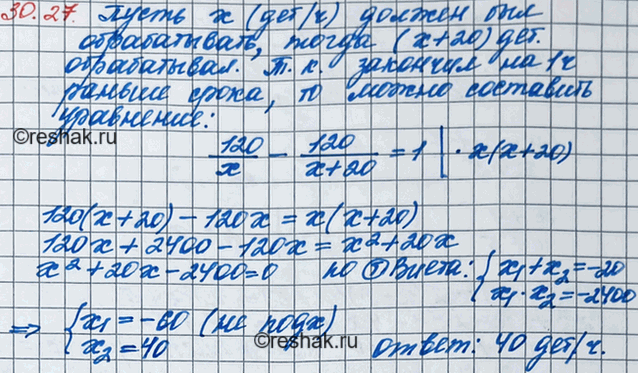 30.27. Пусть x (дет/ч) должен был
обрабатывать, тогда (x+20) дет.
обрабатывал. Т.к. закончил на 1ч
раньше срока, то можно составить
уравнение:
©reshak.ru
120/x - 120/(x+20) = 1 | · x(x+20)
120(x+20) - 120x = x(x+20)
120x + 2400 - 120x = x² + 20x
x² + 20x - 2400 = 0 по Ⓣ Виета: { x₁ + x₂ = -20
x₁ · x₂ = -2400
⇒ { x₁ = -60 (не подх)
x₂ = 40 ответ: 40 дет/ч.
©reshak.ru